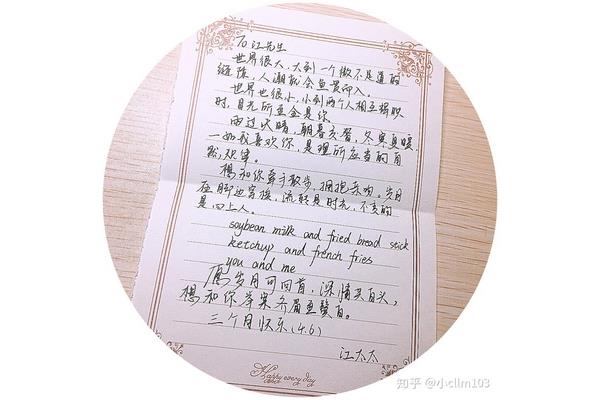 To 江先生
世界很大,大到一个微不足道的
缝隙,人潮就会鱼贯而入。
世界也很小,小到两个人相互拥吻
时,目光所至全是你
雨过天晴,朝暮交替,冬寒夏暖
一如我喜欢你,是理所应当的自
然规律。
想和你牵手散步,拥抱亲吻。岁月
在脚边穿梭,流转是时光,不变的
是心上人。
soybean milk and fried bread stick
ketchup and french fries
you and me
愿岁月可回首,深情共白头,
想和你举案齐眉至鬓白。
三个月快乐(4.6)
江太太
Happy every day
知乎 @小cllm103